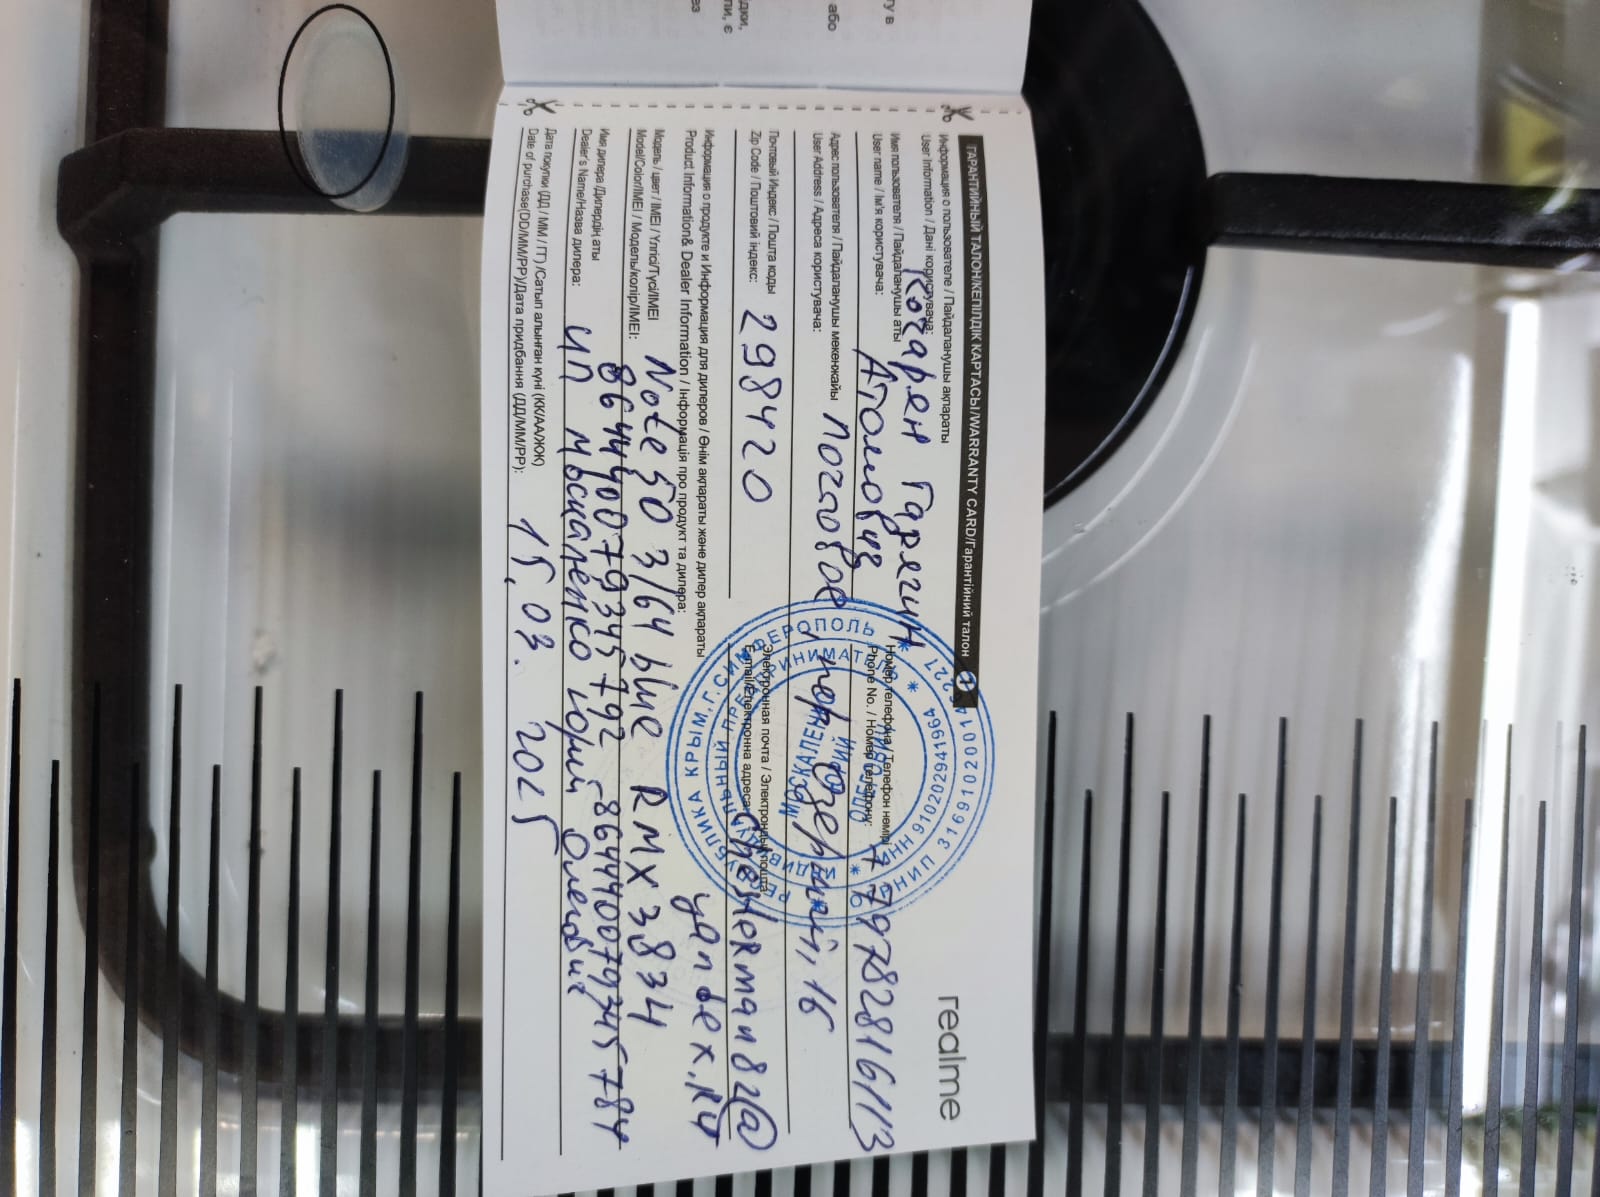 ГАРАНТИЙНЫЙ ТАЛОН/КЕПІЛДІК КАРТАСЫ/WARRANTY CARD/Гарантійний талон
realme
Информация о пользователе / Пайдаланушы ақпараты
User Information / Дані користувача:
Имя пользователя / Пайдаланушы аты
User name / Ім'я користувача:
Кочарен Гарягин
Атомович
Номер телефона / Телефон нөмірі
Phone No. / Номер телефону:
+79782816113
Адрес пользователя / Пайдаланушы мекенжайы
User Address / Адреса користувача:
пер Озерный, 16
Почтовый Индекс / Пошта коды
Zip Code / Поштовий індекс:
298420
Электронная почта / Электрондық пошта
E-mail/Електронна адреса:
chesterman82@
yandex.ru
Информация о продукте и Информация для дилеров / Өнім ақпараты және дилер ақпараты
Product Information& Dealer Information / Інформація про продукт та дилера:
Модель / цвет / IMEI / Үлгісі/Түсі/IMEI
Model/Color/IMEI / Модель/колір/IMEI:
Note 50 3/64 blue RMX3834
864440079345792 - 864440079345784
Имя дилера /Дилердің аты
Dealer's Name/Назва дилера:
ИП Москаленко Юрий Олегович
Дата покупки (ДД / ММ / ГГ) /Сатып алынған күні (КК/АА/ЖЖ)
Date of purchase(DD/MM/PP)/Дата придбання (ДД/ММ/РР):
15. 03. 2025
РЕСПУБЛИКА КРЫМ, Г. СИМФЕРОПОЛЬ
ИНДИВИДУАЛЬНЫЙ ПРЕДПРИНИМАТЕЛЬ
ИНН 910202941964
МОСКАЛЕНКО
ЮРИЙ
ОЛЕГОВИЧ